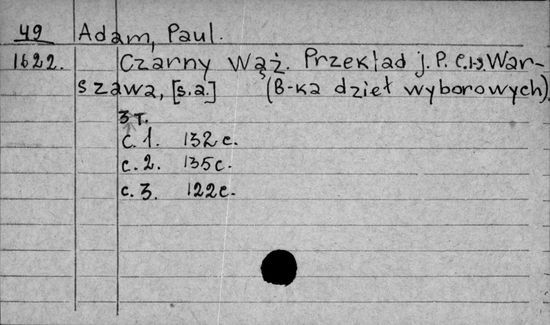 49 Adam, Paul.
1622. Czarny Wąż. Przekład J. P. War-
szawa, [s.a.] (B-ka dzieł wyborowych)
3 т.
c. 1. 132 c.
c. 2. 135 c.
c. 3. 122 c.